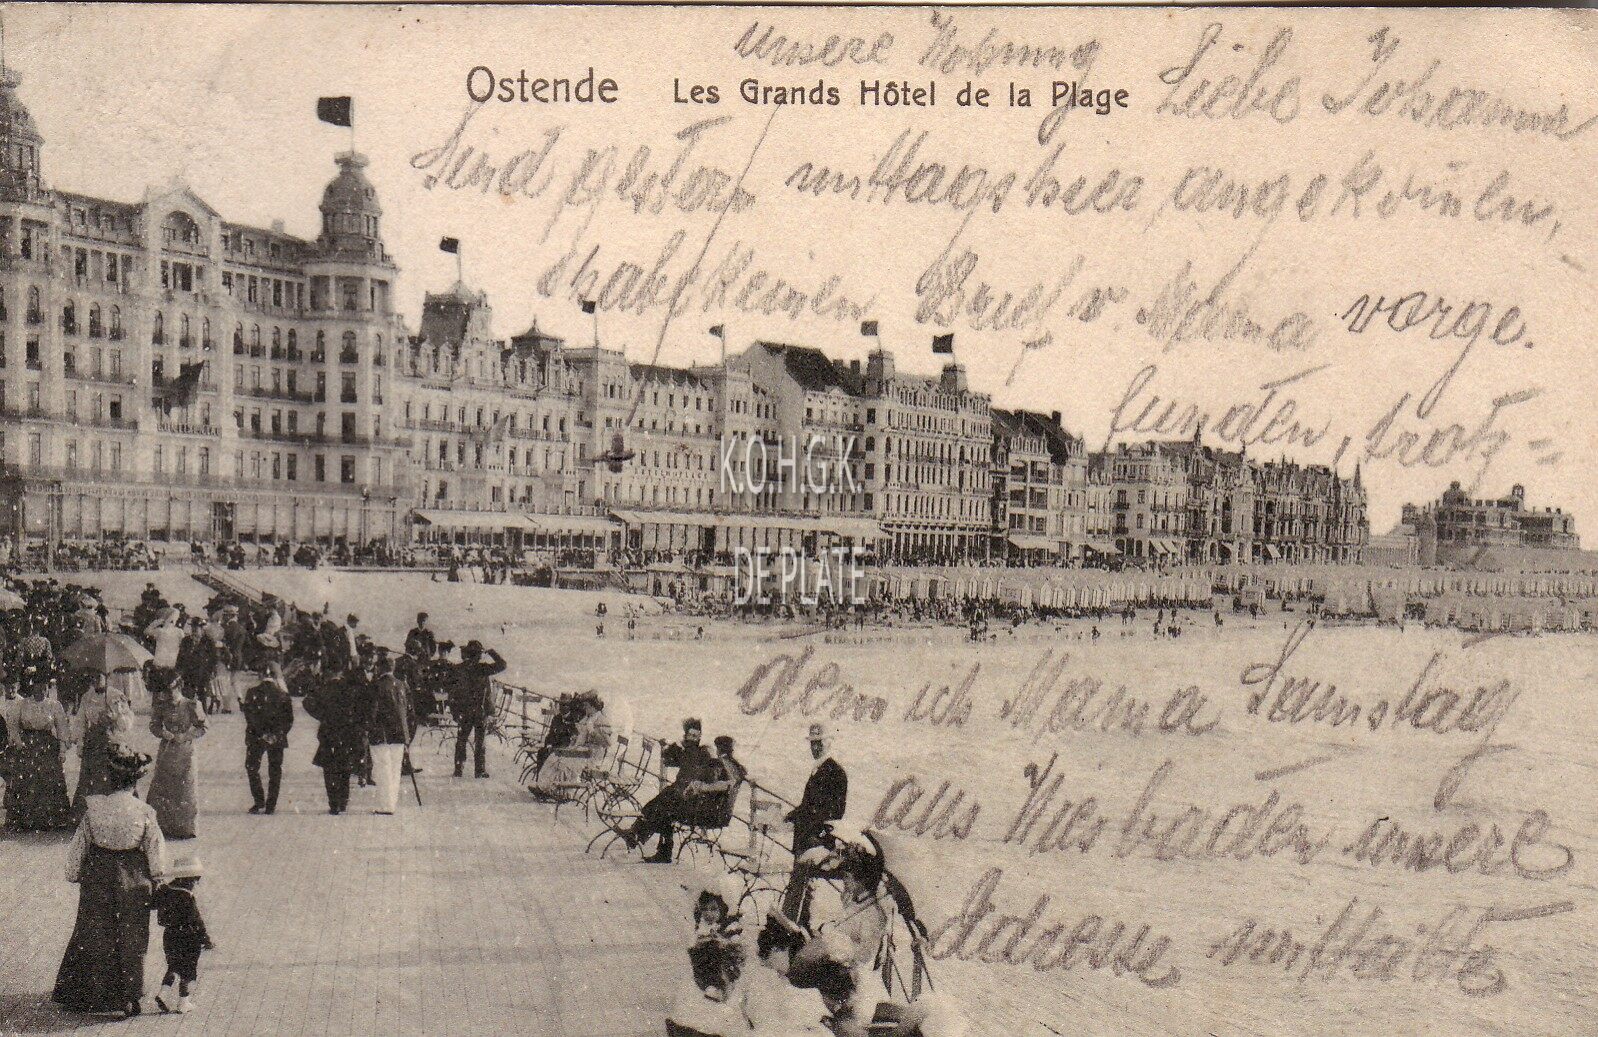 unsere Wohnung
Ostende Les Grands Hôtel de la Plage
Liebe Johanna
Sind gestern mittags hier angekommen,
habe keinen Brief v. Mama vorge-
funden, trotz=
K.O.H.G.K.
DE PLATE
dem ich Mama Samstag
aus Wiesbaden unsere
Adresse mitteilte